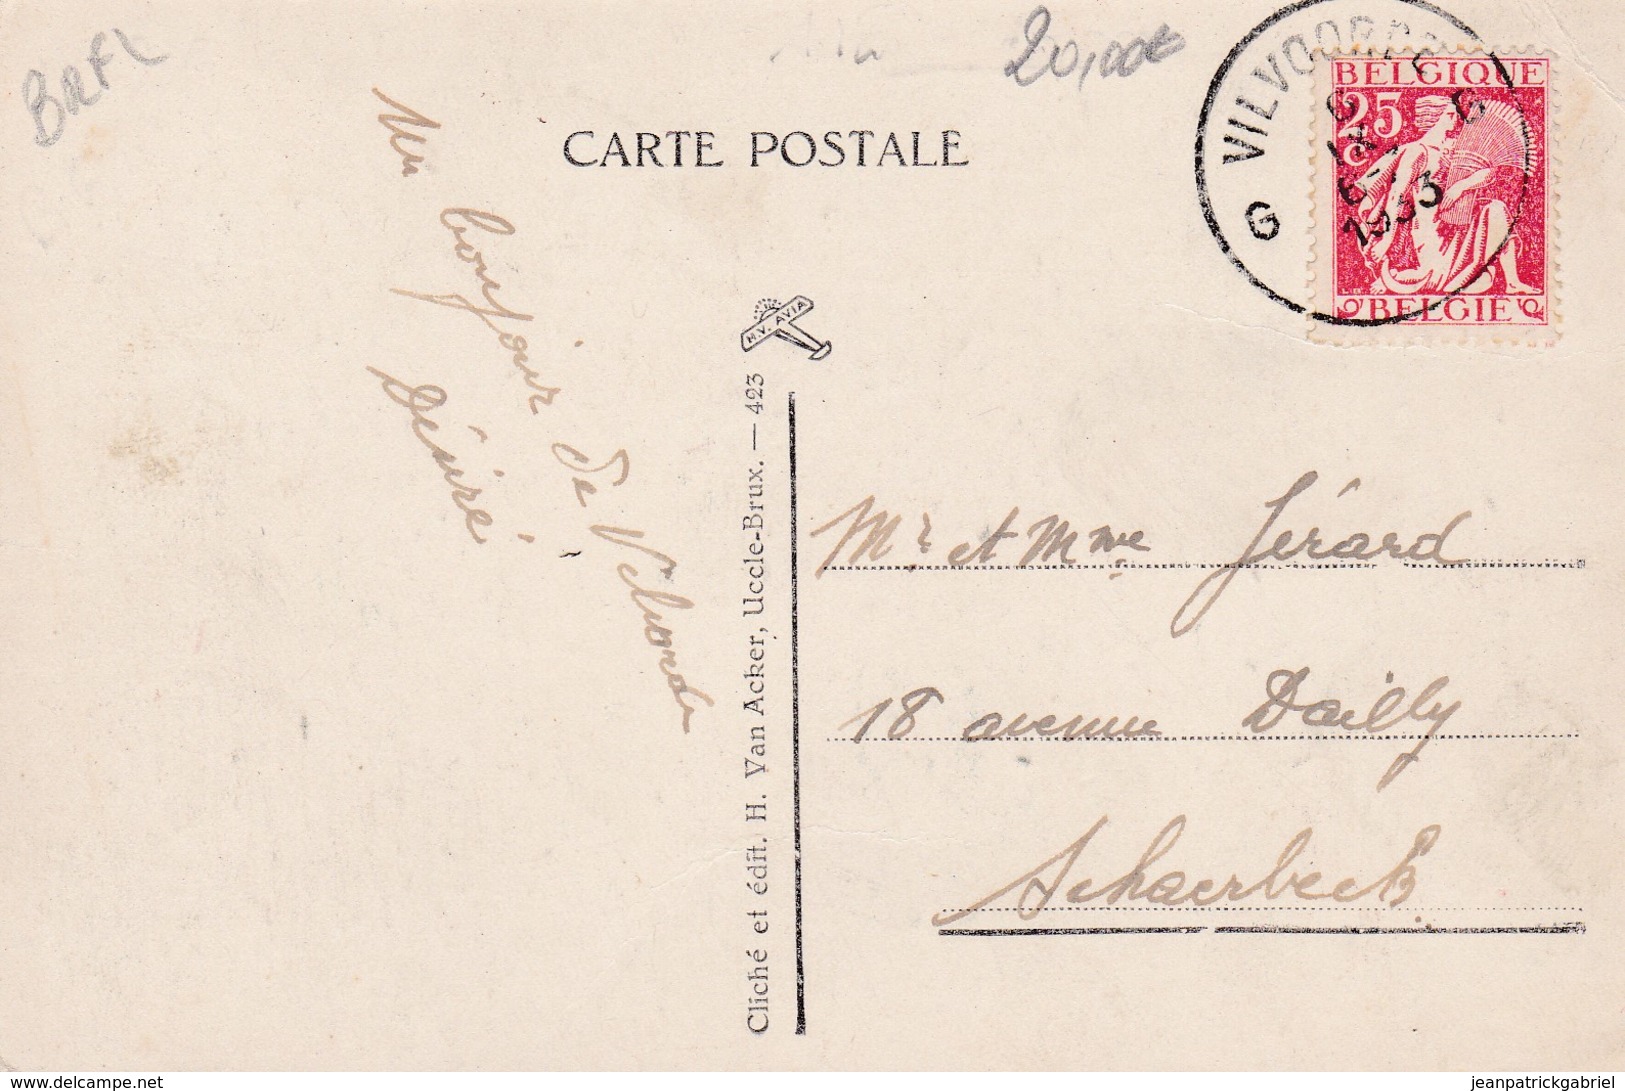 BRFL
20,00€
CARTE POSTALE
VILVOORDE
G G
IX
1933
BELGIQUE
25
C
BELGIE
Un
bonjour
de Vilvorde
Désiré
H.V. AVIA
Cliché et édit. H. Van Acker, Uccle-Brux. — 423
Mr et Mme Gérard
18 avenue Dailly
Schaerbeek
www.delcampe.net
jeanpatrickgabriel